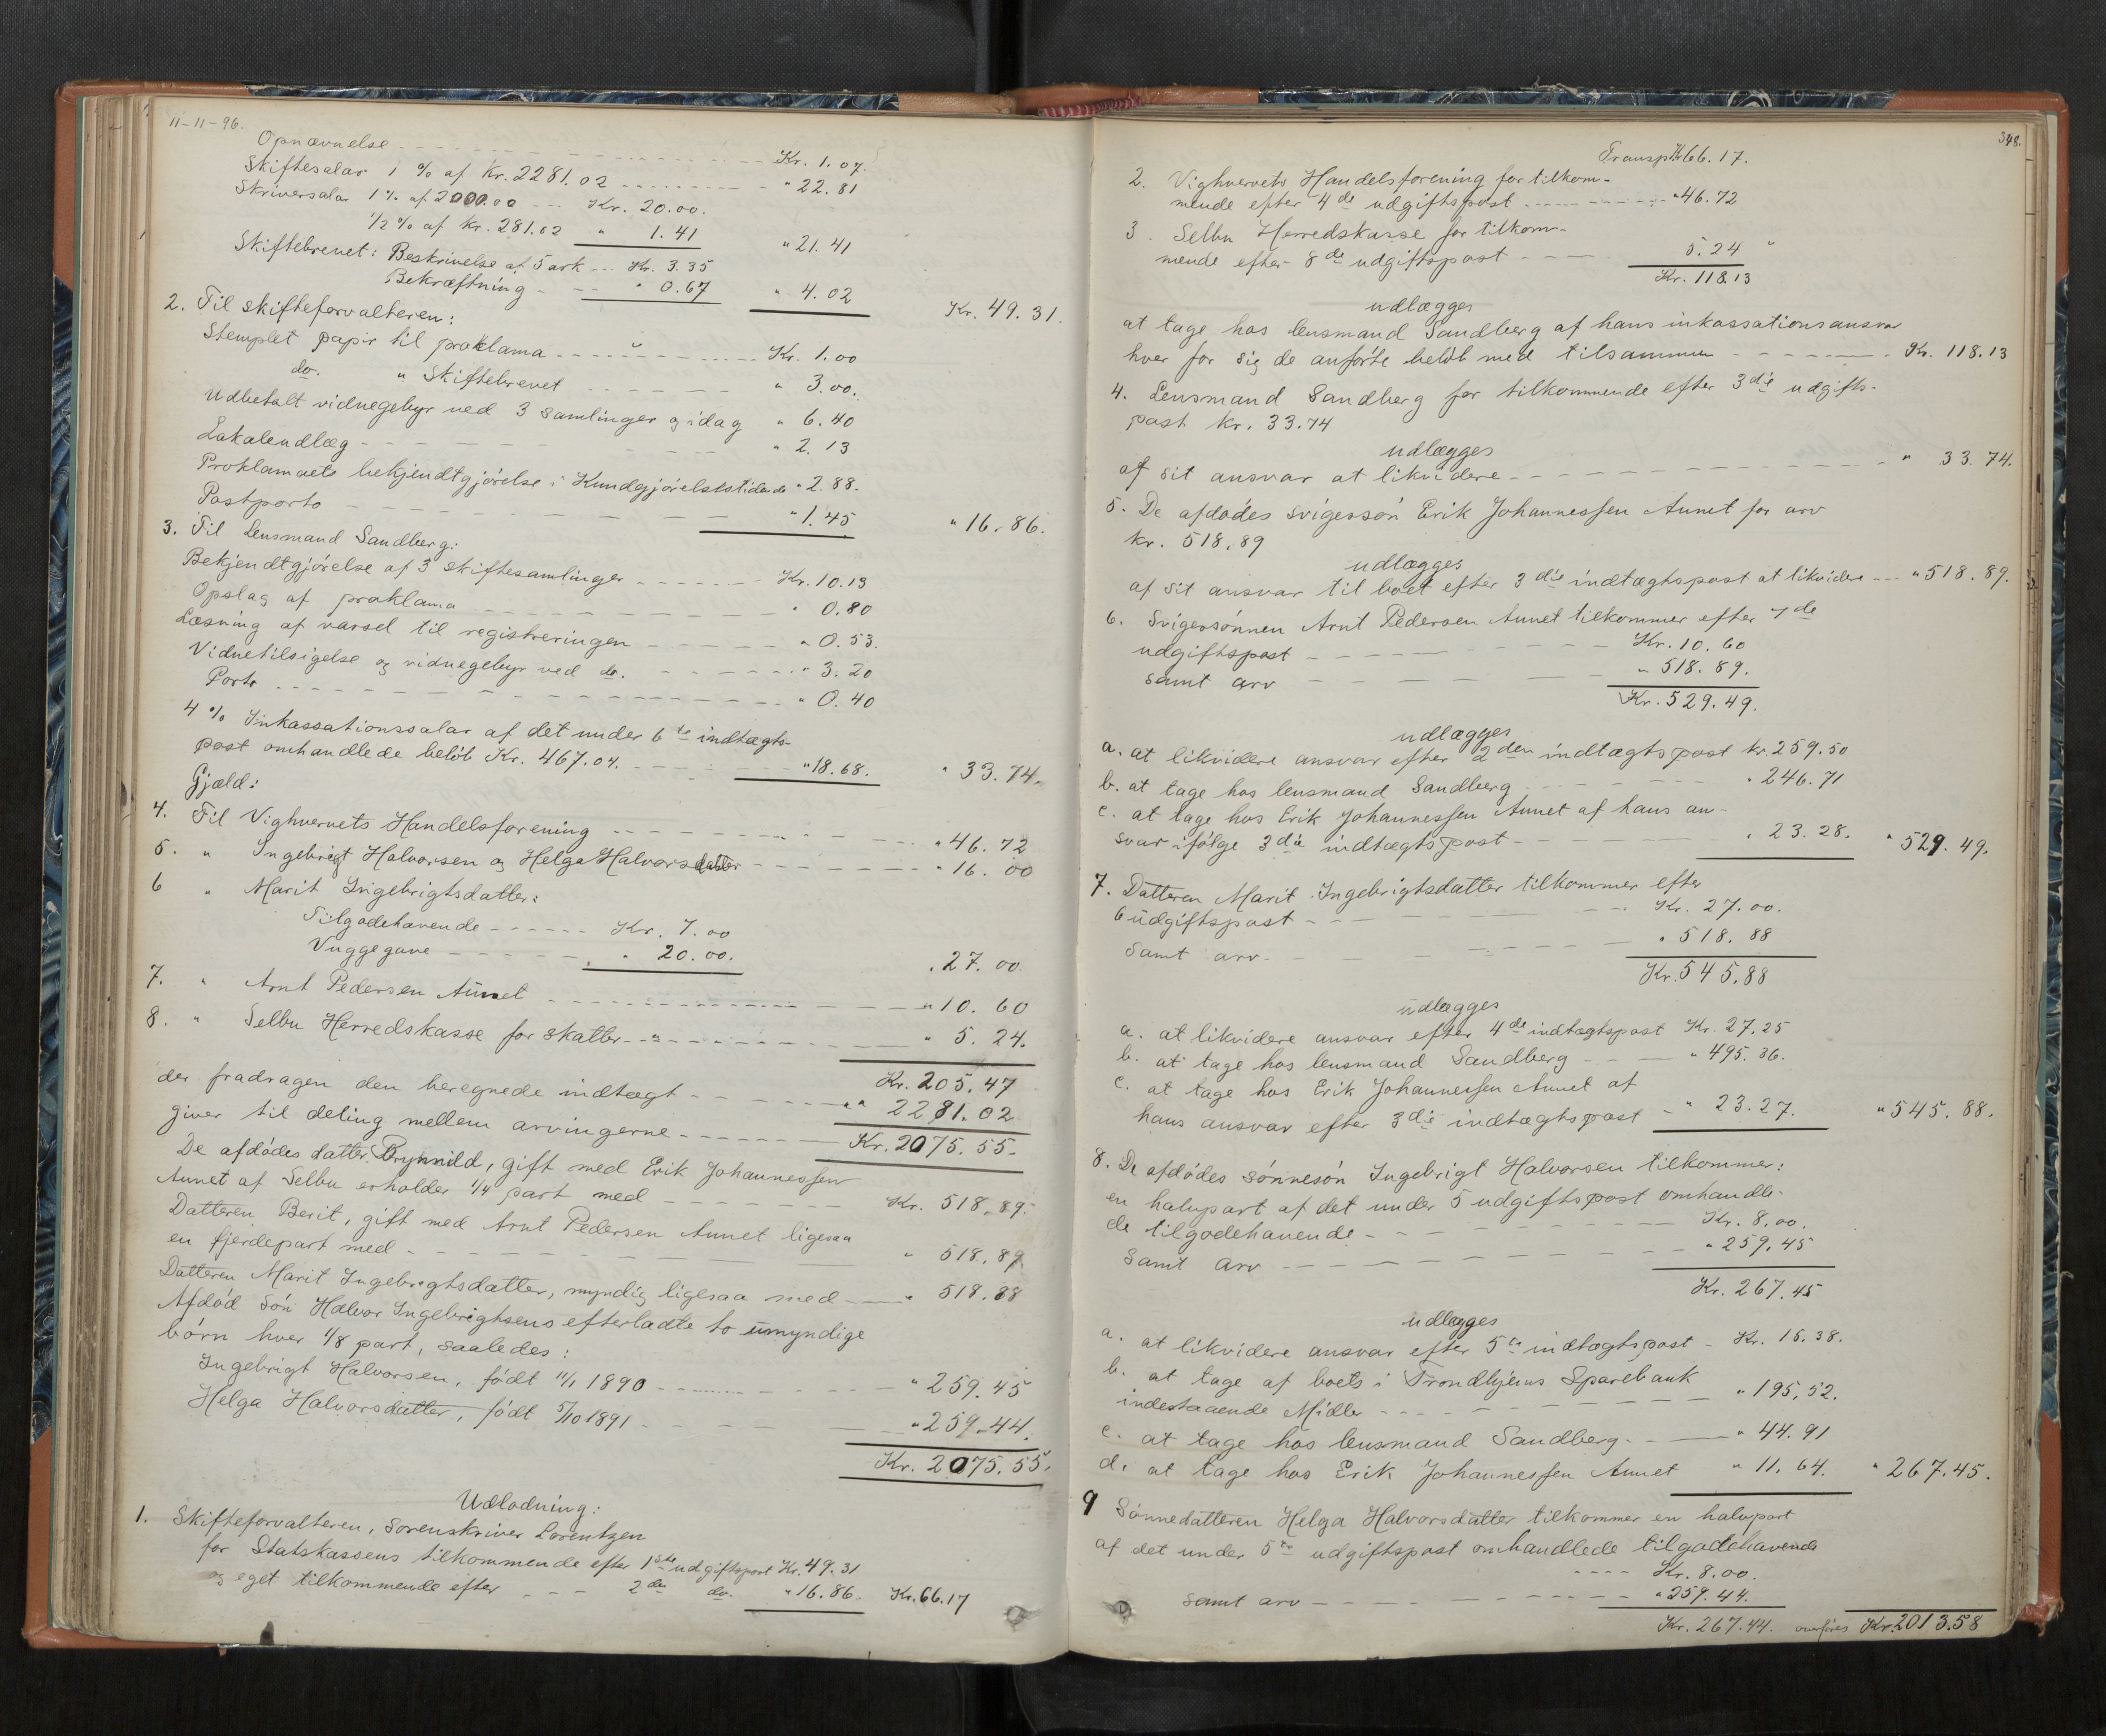 11-11-96.
Opnævnelse - - - Kr. 1.07
Skiftesalar 1 % af Kr. 2281.02 - - - " 22.81
Skriversalar 1 % af 2000.00 - - - Kr. 20.00.
1/2 % af kr. 281.02 " 1.41 " 21.41
Skiftebrevet: Beskrivelse af 5 ark - - - Kr. 3.35
Bekræftning - - - " 0.67 " 4.02 Kr. 49.31.
2. Til skifteforvalteren:
Stemplet papir til proklama - - - Kr. 1.00
do. " Skiftebrevet - - - " 3.00.
Udbetalt vidnegebyr ved 3 samlinger og idag " 6.40
Lokaleudlæg - - - " 2.13
Proklamaets bekjendtgjørelse i Kundgjørelsestidende " 2.88.
Postporto - - - " 1.45 " 16.86.
3. Til Lensmand Sandberg:
Bekjendtgjørelse af 3 skiftesamlinger - - - Kr. 10.13
Opslag af proklama - - - " 0.80
Læsning af varsel til registreringen - - - " 0.53.
Vidnetilsigelse og vidnegebyr ved do. - - - " 3.20
Porto - - - " 0.40
4 % Inkassationssalar af det under 6te indtægts-
post omhandlede beløb Kr. 467.04. - - - " 18.68. " 33.74.
Gjæld:
4. Til Vighvervets Handelsforening - - - " 46.72
5. " Ingebrigt Halvorsen og Helga Halvorsdatter - - - " 16.00
6 " Marit Ingebrigtsdatter:
Tilgodehavende - - - Kr. 7.00
Vuggegave - - - " 20.00. " 27.00
7. " Arnt Pedersen Aunet - - - " 10.60
8. " Selbu Herredskasse for skatter - - - " 5.24.
Kr. 205.47
der fradragen den beregnede indtægt - - - " 2281.02
giver til deling mellem arvingerne - - - Kr. 2075.55.
De afdødes datter Brynnild, gift med Erik Johannessen
Aunet af Selbu erholder 1/4 part med - - - Kr. 518.89.
Datteren Berit, gift med Arnt Pedersen Aunet ligesaa
en fjerdepart med - - - " 518.89
Datteren Marit Ingebrigtsdatter, myndig ligesaa med - - - " 518.88
Afdød søn Halvor Ingebrigtsens efterladte to umyndige
børn hver 1/8 part, saaledes:
Ingebrigt Halvorsen, født 11/1 1890 - - - " 259.45
Helga Halvorsdatter, født 5/10 1891 - - - " 259.44.
Kr. 2075.55.
Udlodning:
1. Skifteforvalteren, Sorenskriver Lorentzen
for Statskassens tilkommende efter 1ste udgiftspost Kr. 49.31
og eget tilkommende efter - - - 2den do. " 16.86. Kr. 66.17
348.
Transp. Kr. 66.17.
2. Vighvervets Handelsforening for tilkom-
mende efter 4de udgiftspost - - - " 46.72
3. Selbu Herredskasse for tilkom-
mende efter 8de udgiftspost - - - 5.24 "
Kr. 118.13
udlægges
at tage hos lensmand Sandberg af hans inkassationsansvar
hver for sig de anførte beløb med tilsammen - - - Kr. 118.13
4. Lensmand Sandberg for tilkommende efter 3die udgifts-
post kr. 33.74
udlægges
af sit ansvar at likvidere - - - " 33.74.
5. De afdødes svigersøn Erik Johannessen Aunet for arv
kr. 518.89
udlægges
af sit ansvar til boet efter 3die indtægtspost at likvidere - - - " 518.89.
6. Svigersønnen Arnt Pedersen Aunet tilkommer efter 7de
udgiftspost - - - Kr. 10.60
samt arv - - - " 518.89.
Kr. 529.49.
udlægges
a. at likvidere ansvar efter 2den indtægtspost kr. 259.50
b. at tage hos lensmand Sandberg - - - " 246.71
c. at tage hos Erik Johannessen Aunet af hans an-
svar ifølge 3die indtægtspost - - - " 23.28. " 529.49.
7. Datteren Marit Ingebrigtsdatter tilkommer efter
6 udgiftspost - - - Kr. 27.00.
Samt arv - - - " 518.88
Kr. 545.88
udlægges
a. at likvidere ansvar efter 4de indtægtspost Kr. 27.25
b. at tage hos lensmand Sandberg - - - " 495.36.
c. at tage hos Erik Johannessen Aunet af
hans ansvar efter 3die indtægtspost - " 23.27. " 545.88.
8. De afdødes sønnesøn Ingebrigt Halvorsen tilkommer:
en halvpart af det under 5 udgiftspost omhandle-
de tilgodehavende - - - Kr. 8.00.
Samt arv - - - " 259.45
Kr. 267.45
udlægges
a. at likvidere ansvar efter 5te indtægtspost - Kr. 15.38.
b. at tage af boets i Trondhjems Sparebank
indestaaende Midler - - - " 195.52.
c. at tage hos lensmand Sandberg - - - " 44.91
d. at tage hos Erik Johannessen Aunet " 11.64. " 267.45.
9 Sønnedatteren Helga Halvorsdatter tilkommer en halvpart
af det under 5te udgiftspost omhandlede tilgodehavende
- - - - Kr. 8.00.
samt arv - - - " 259.44.
Kr. 267.44. overføres Kr. 2013.58